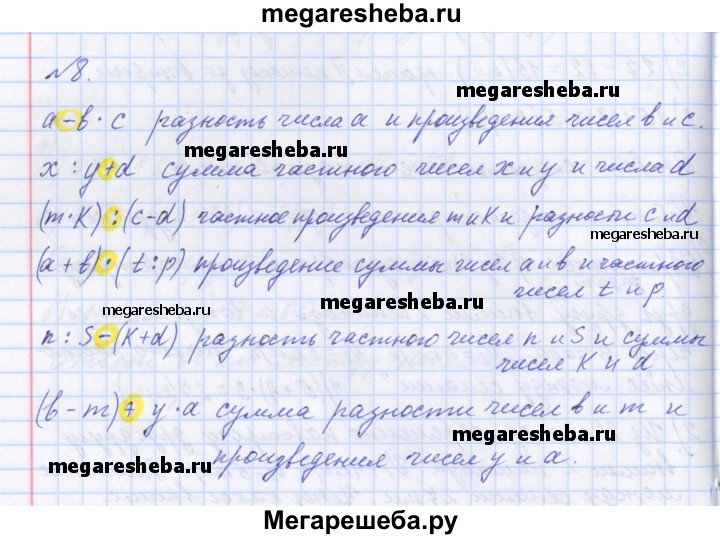 megaresheba.ru
№8.
megaresheba.ru
a - b · c разность числа a и произведения чисел b и c.
megaresheba.ru
x : y + d сумма частного чисел x и y и числа d
(m · K) : (c - d) частное произведения m и K и разности c и d
megaresheba.ru
(a + b) · (t : p) произведение суммы чисел a и b и частного
чисел t и p.
megaresheba.ru
megaresheba.ru
n : S - (K + d) разность частного чисел n и S и суммы
чисел K и d
(b - m) + y · a сумма разности чисел b и m и
megaresheba.ru
произведения чисел y и a.
megaresheba.ru
Мегарешеба.ру